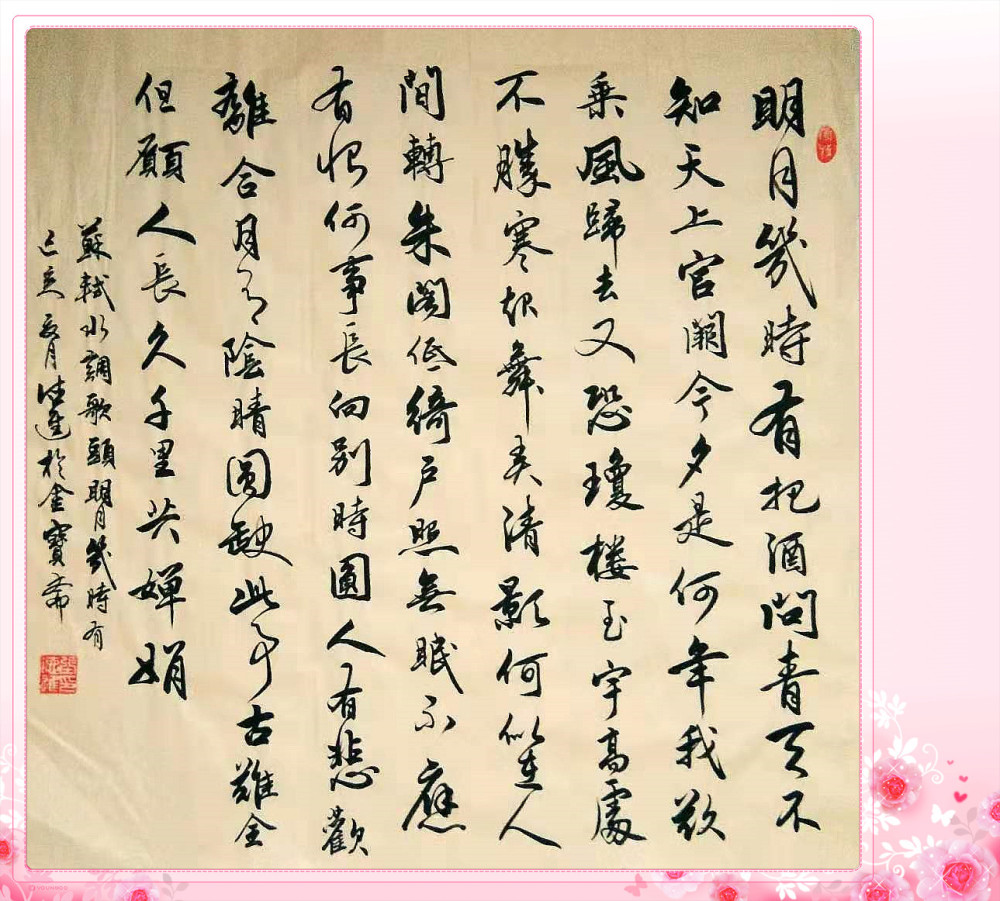 明月幾時有把酒問青天不
知天上宮闕今夕是何年我欲
乘風歸去又恐瓊樓玉宇高處
不勝寒起舞弄清影何似在人
間轉朱閣低綺戶照無眠不應
有恨何事長向別時圓人有悲歡
離合月有陰晴圓缺此事古難全
但願人長久千里共嬋娟
蘇軾水調歌頭明月幾時有
己亥夏月佳進於金寶齋